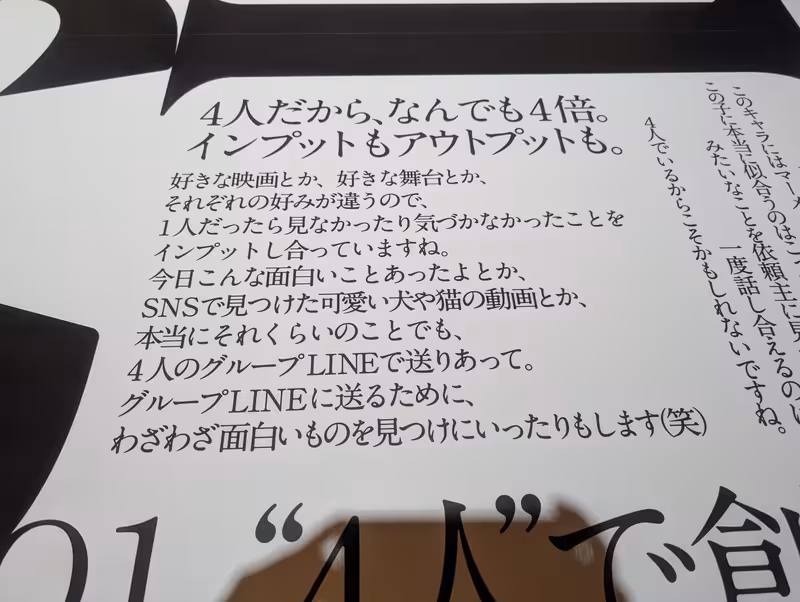 4人だから、なんでも4倍。
インプットもアウトプットも。
好きな映画とか、好きな舞台とか、
それぞれの好みが違うので、
1人だったら見なかったり気づかなかったことを
インプットし合っていますね。
今日こんな面白いことあったよとか、
SNSで見つけた可愛い犬や猫の動画とか、
本当にそれくらいのことでも、
4人のグループLINEで送りあって。
グループLINEに送るために、
わざわざ面白いものを見つけにいったりもします(笑)
このキャラにはマー
この子に本当に似合うのはこ
みたいなことを依頼主に見
一度話し合えるのは
4人でいるからこそかもしれないですね。
01 “4人”で創